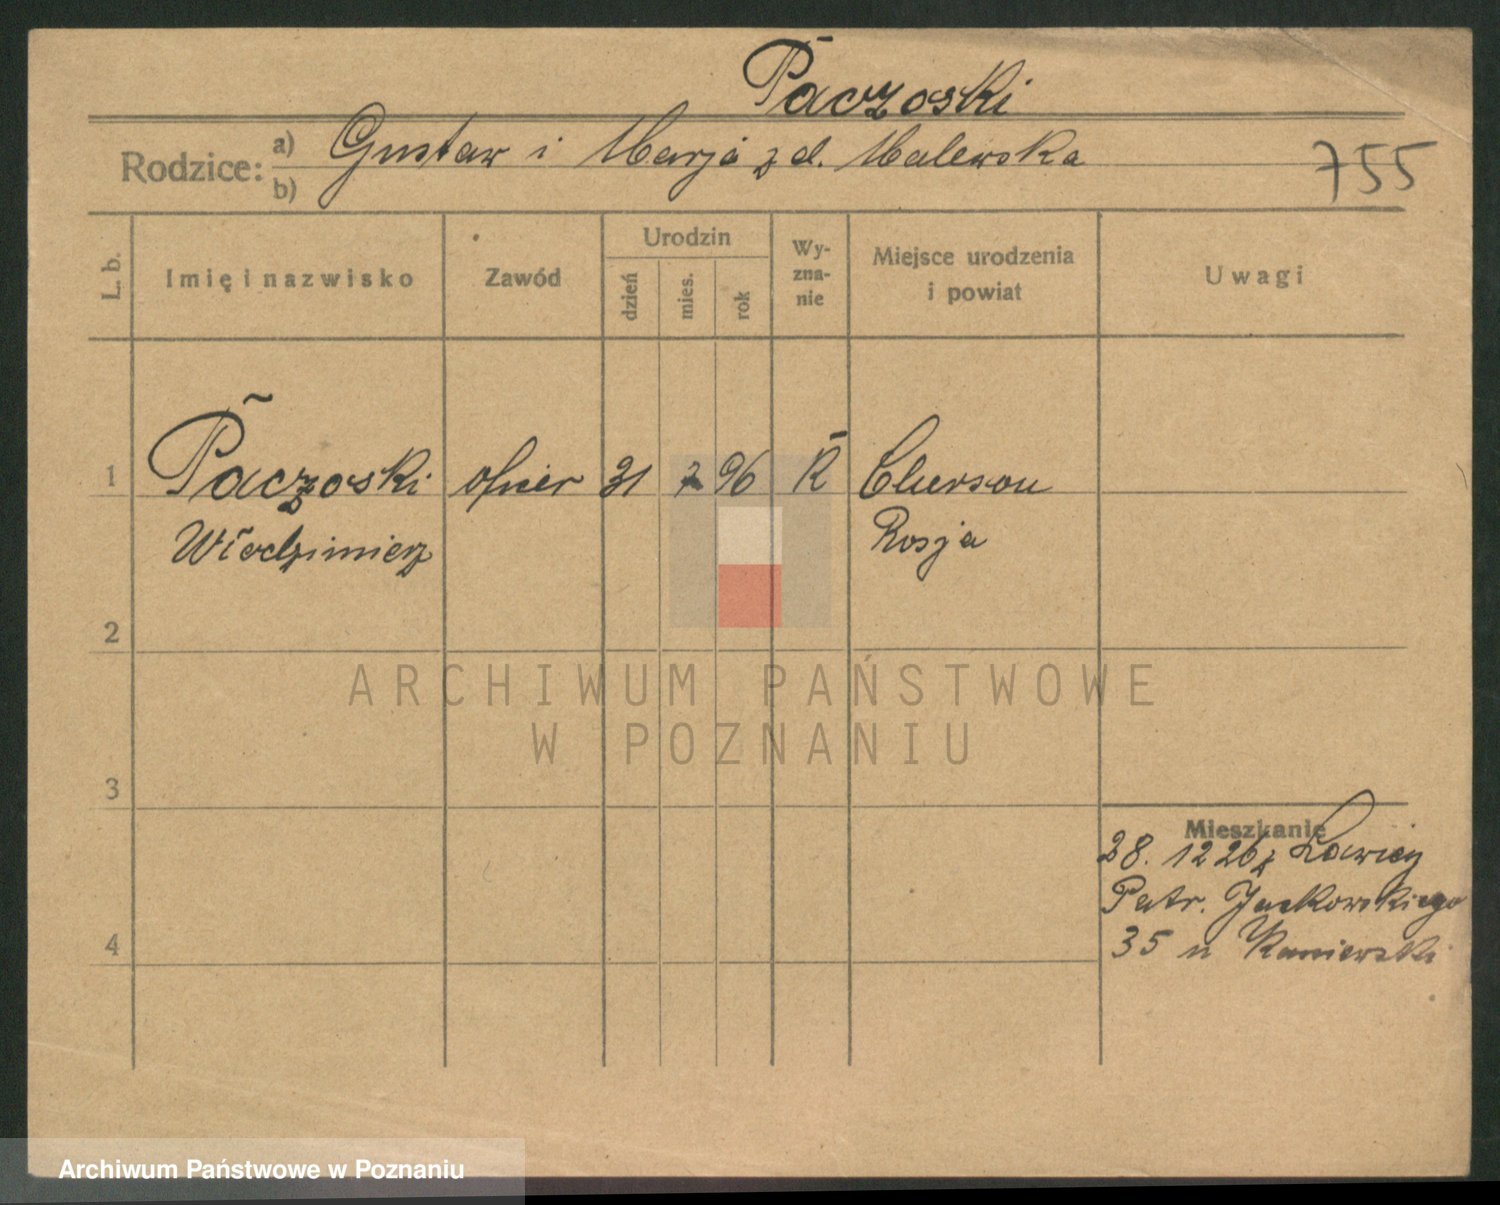 Paczoski
Rodzice: a) Gustaw i Marja z d. Malewska
b)
755
L. b. Imię i nazwisko Zawód Urodzin dzień mies. rok Wy-zna-nie Miejsce urodzenia i powiat Uwagi
1 Paczoski oficer 31 7 96 R Cherson
Włodzimierz Rosja
2
ARCHIWUM PAŃSTWOWE
W POZNANIU
3
Mieszkanie
28. 12 26 z Ławicy
Patr. Jackowskiego
35 u Kaniewski
4
Archiwum Państwowe w Poznaniu